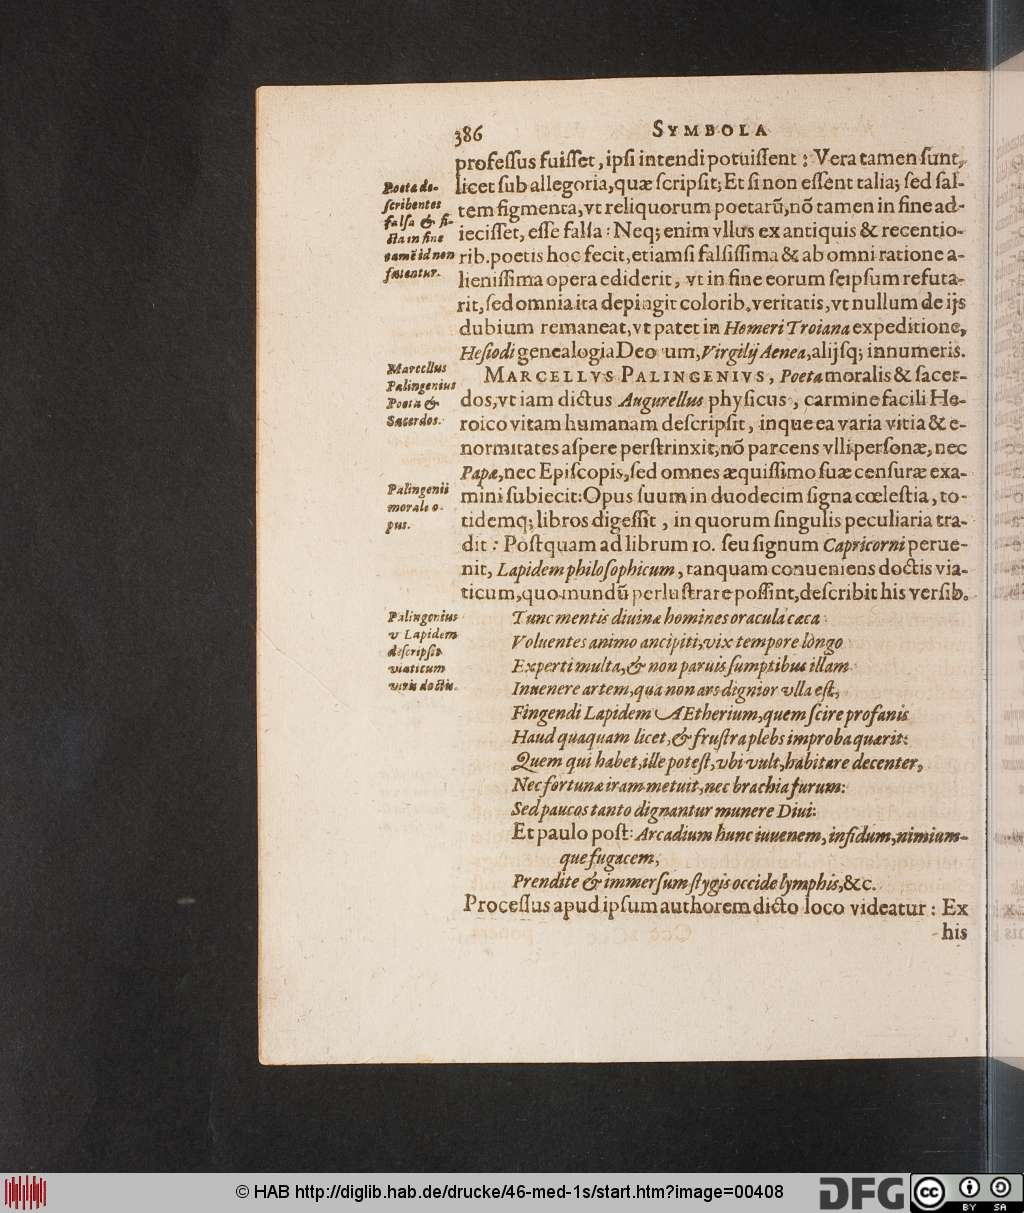 386
SYMBOLA
professus fuisset, ipsi intendi potuissent : Vera tamen sunt,
licet sub allegoria, quæ scripsit; Et si non essent talia; sed sal-
tem figmenta, vt reliquorum poetarũ, nõ tamen in fine ad-
iecisset, esse falsa : Neq; enim vllus ex antiquis & recentio-
rib. poetis hoc fecit, etiamsi falsissima & ab omni ratione a-
lienissima opera ediderit, vt in fine eorum seipsum refuta-
rit, sed omnia ita depingit colorib. veritatis, vt nullum de ijs
dubium remaneat, vt patet in Homeri Troiana expeditione,
Hesiodi genealogia Deo um, Virgilij Aenea, alijsq; innumeris.
MARCELLVS PALINGENIVS, Poeta moralis & sacer-
dos, vt iam dictus Augurellus physicus, carmine facili He-
roico vitam humanam descripsit, inque ea varia vitia & e-
normitates aspere perstrinxit, nõ parcens vlli personæ, nec
Papæ, nec Episcopis, sed omnes æquissimo suæ censuræ exa-
mini subiecit: Opus suum in duodecim signa cœlestia, to-
tidemq; libros digessit, in quorum singulis peculiaria tra-
dit : Postquam ad librum 10. seu signum Capricorni perue-
nit, Lapidem philosophicum, tanquam conueniens doctis via-
ticum, quo mundũ perlustrare possint, describit his versib.
Tunc mentis diuinæ homines oracula cæca
Voluentes animo ancipiti, vix tempore longo
Experti multa, & non paruis sumptibus illam
Inuenere artem, qua non ars dignior vlla est,
Fingendi Lapidem Ætherium, quem scire profanis
Haud quaquam licet, & frustra plebs improba quærit:
Quem qui habet, ille potest, vbi vult, habitare decenter,
Nec fortunæ iram metuit, nec brachia furum:
Sed paucos tanto dignantur munere Diui:
Et paulo post: Arcadium hunc iuuenem, infidum, nimium-
que fugacem,
Prendite & immersum stygis occide lymphis, &c.
Processus apud ipsum authorem dicto loco videatur : Ex
his
Poetæ de-
scribentes
falsa & fi-
cta in fine
tamẽ id non
fatentur.
Marcellus
Palingenius
Poeta &
Sacerdos.
Palingenii
morale o-
pus.
Palingenius
v Lapidem
descripsit
viaticum
viris doctis.
© HAB http://diglib.hab.de/drucke/46-med-1s/start.htm?image=00408
DFG
cc
BY SA